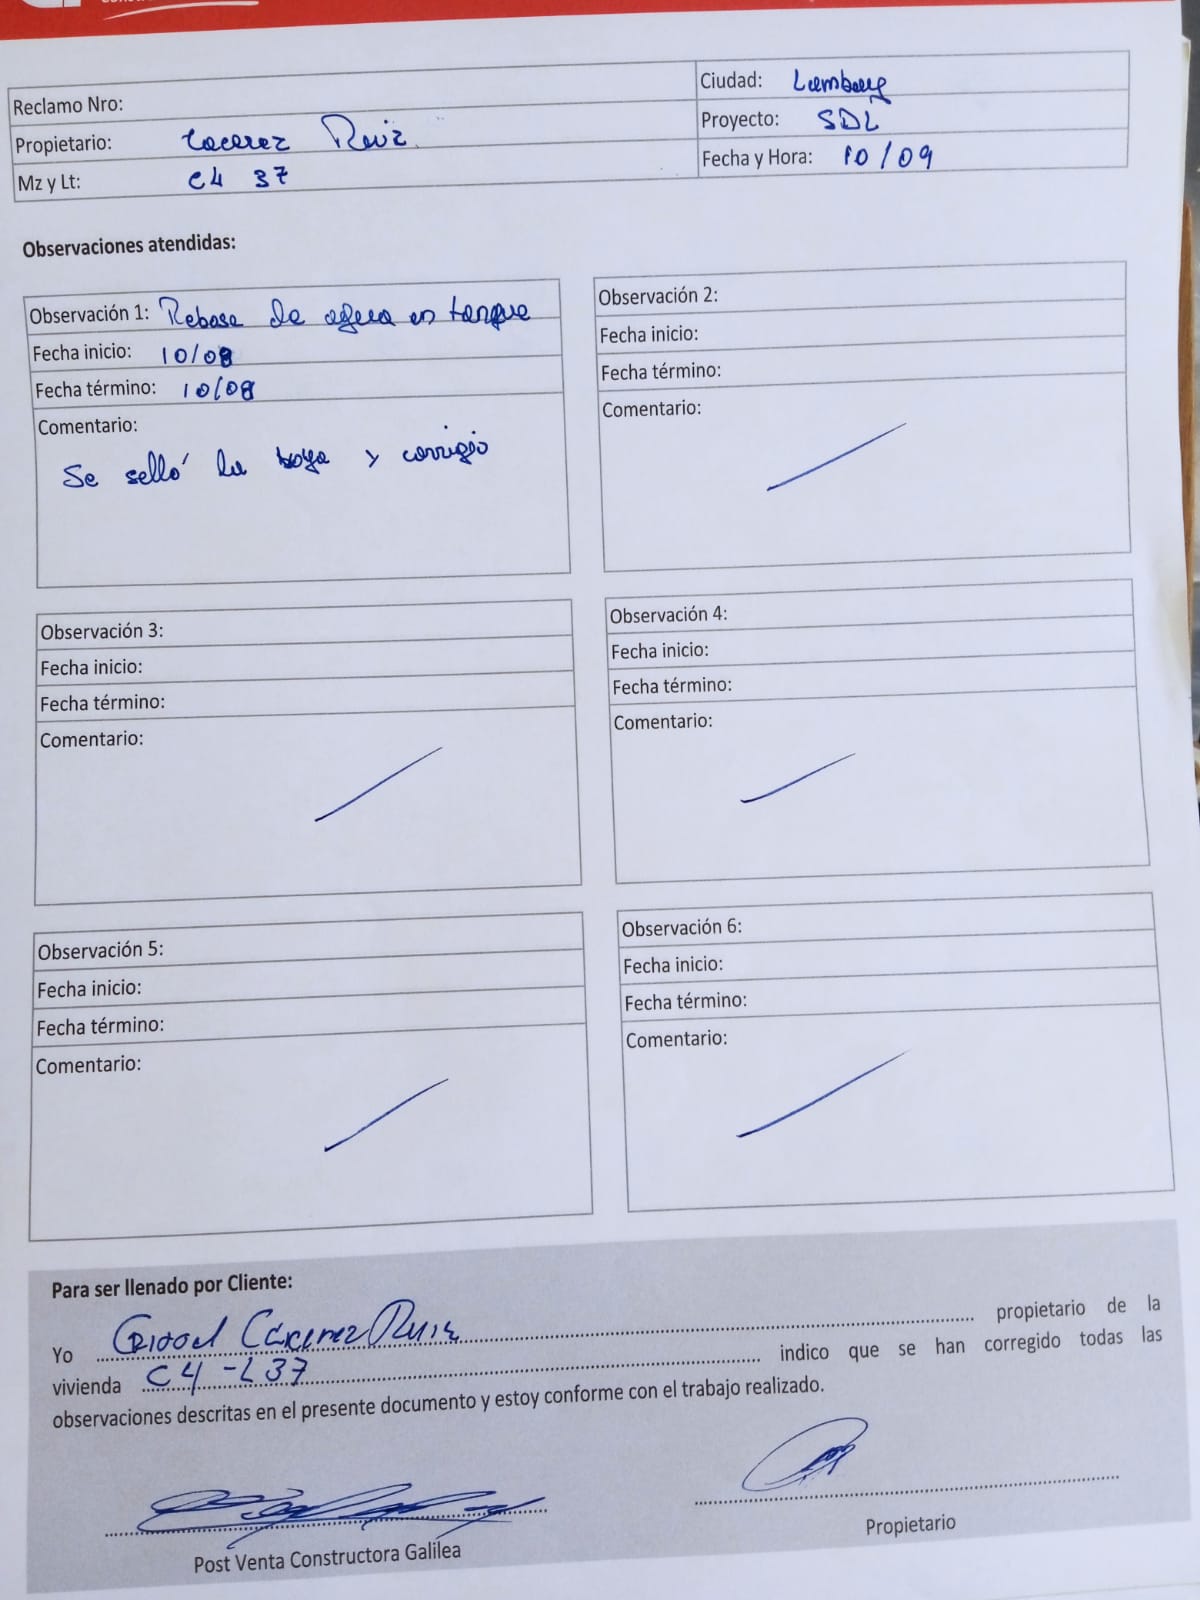 Reclamo Nro:
Propietario: Cacerez Ruiz
Mz y Lt: C4 37
Ciudad: Lambayq
Proyecto: SDL
Fecha y Hora: 10/09
Observaciones atendidas:
Observación 1: Rebose de agua en tanque
Fecha inicio: 10/08
Fecha término: 10/08
Comentario:
Se selló la boya y corrigio
Observación 2:
Fecha inicio:
Fecha término:
Comentario:
Observación 3:
Fecha inicio:
Fecha término:
Comentario:
Observación 4:
Fecha inicio:
Fecha término:
Comentario:
Observación 5:
Fecha inicio:
Fecha término:
Comentario:
Observación 6:
Fecha inicio:
Fecha término:
Comentario:
Para ser llenado por Cliente:
Yo Cácerez Ruiz propietario de la
vivienda C4 - L37 indico que se han corregido todas las
observaciones descritas en el presente documento y estoy conforme con el trabajo realizado.
Post Venta Constructora Galilea
Propietario